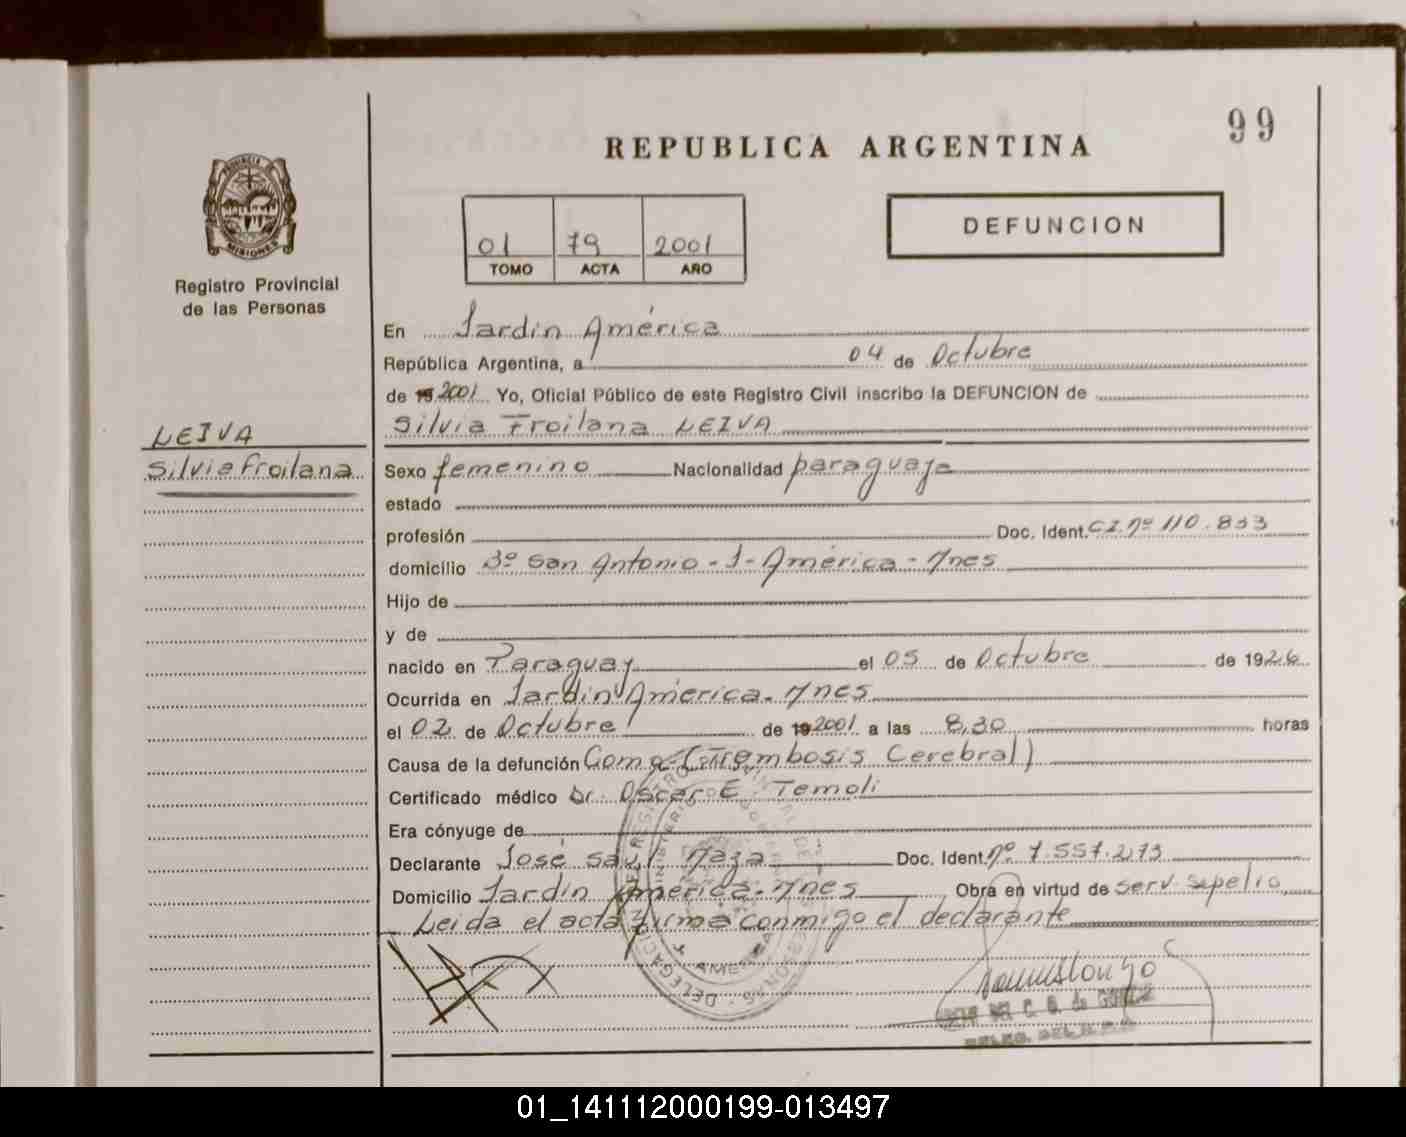 99
REPUBLICA ARGENTINA
PROVINCIA DE
MISIONES
Registro Provincial
de las Personas
01 79 2001
TOMO ACTA AÑO
DEFUNCION
En Jardin América
República Argentina, a 04 de Octubre
de 19 2001 Yo, Oficial Público de este Registro Civil inscribo la DEFUNCION de
LEIVA
Silvia Froilana
Silvia Froilana LEIVA
Sexo femenino Nacionalidad paraguaya
estado
profesión Doc. Ident. CI. nº 110.833
domicilio Bº San Antonio - J - América - Mnes
Hijo de
y de
nacido en Paraguay el 05 de Octubre de 1926
Ocurrida en Jardin América - Mnes
el 02 de Octubre de 19 2001 a las 8,30 horas
Causa de la defunción Coma (Trombosis Cerebral)
Certificado médico Dr. Oscar E. Temoli
Era cónyuge de
Declarante José Saul Maza Doc. Ident. nº 7.557.273
Domicilio Jardin América - Mnes Obra en virtud de serv. sepelio,
Leida el acta firma conmigo el declarante
01_141112000199-013497